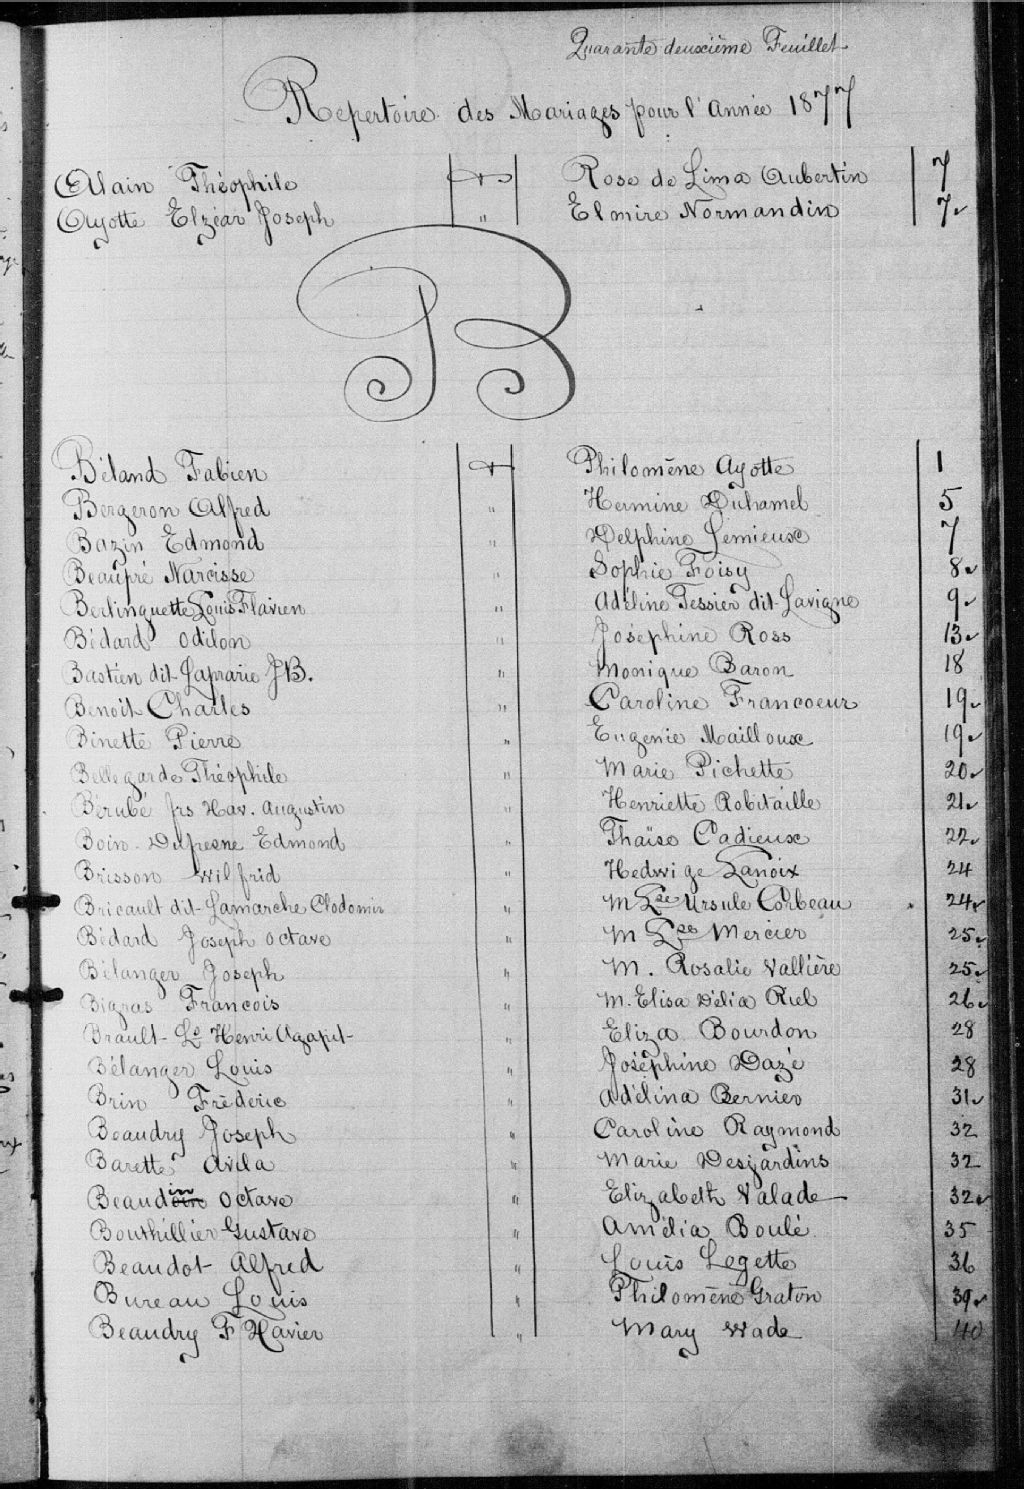 Quarante deuxième Feuillet
Repertoire des Mariages pour l'Année 1877
Alain Théophile & Rose de Lima Aubertin 7
Ayotte Elzéar Joseph " Elmire Normandin 7v
B
Béland Fabien & Philomène Ayotte 1
Bergeron Alfred " Hermine Duhamel 5
Bazin Edmond " Delphine Lemieux 7
Beaupré Narcisse " Sophie Foisy 8v
Berlinquette Louis Flavien " Adéline Tessier dit Lavigne 9v
Bédard Odilon " Joséphine Ross 13v
Bastien dit Laprarie J B. " Monique Baron 18
Benoit Charles " Caroline Francoeur 19v
Binette Pierre " Eugenie Mailloux 19v
Bellegarde Théophile " Marie Pichette 20v
Bérubé frs Xav. Augustin " Henriette Robitaille 21v
Boin-Dufresne Edmond " Thaïse Cadieux 22v
Brisson Wilfrid " Hedwige Lanoix 24
Bricault dit Lamarche Clodomir " M Lse Ursule Corbeau 24v
Bédard Joseph Octave " M Lse Mercier 25v
Bélanger Joseph " M. Rosalie Vallière 25v
Bigras Francois " M. Elisa Délia Riel 26v
Brault Ls Henri Agapit " Eliza Bourdon 28
Bélanger Louis " Joséphine Dazé 28
Brin Fréderic " Adélina Bernier 31v
Beaudry Joseph " Caroline Raymond 32
Barette Avila " Marie Desjardins 32
Beaudin Octave " Elizabeth Valade 32v
Bouthillier Gustave " Amélia Boulé 35
Beaudot Alfred " Louis Legette 36
Bureau Louis " Philomène Graton 39v
Beaudry F Xavier " Mary Wade 40